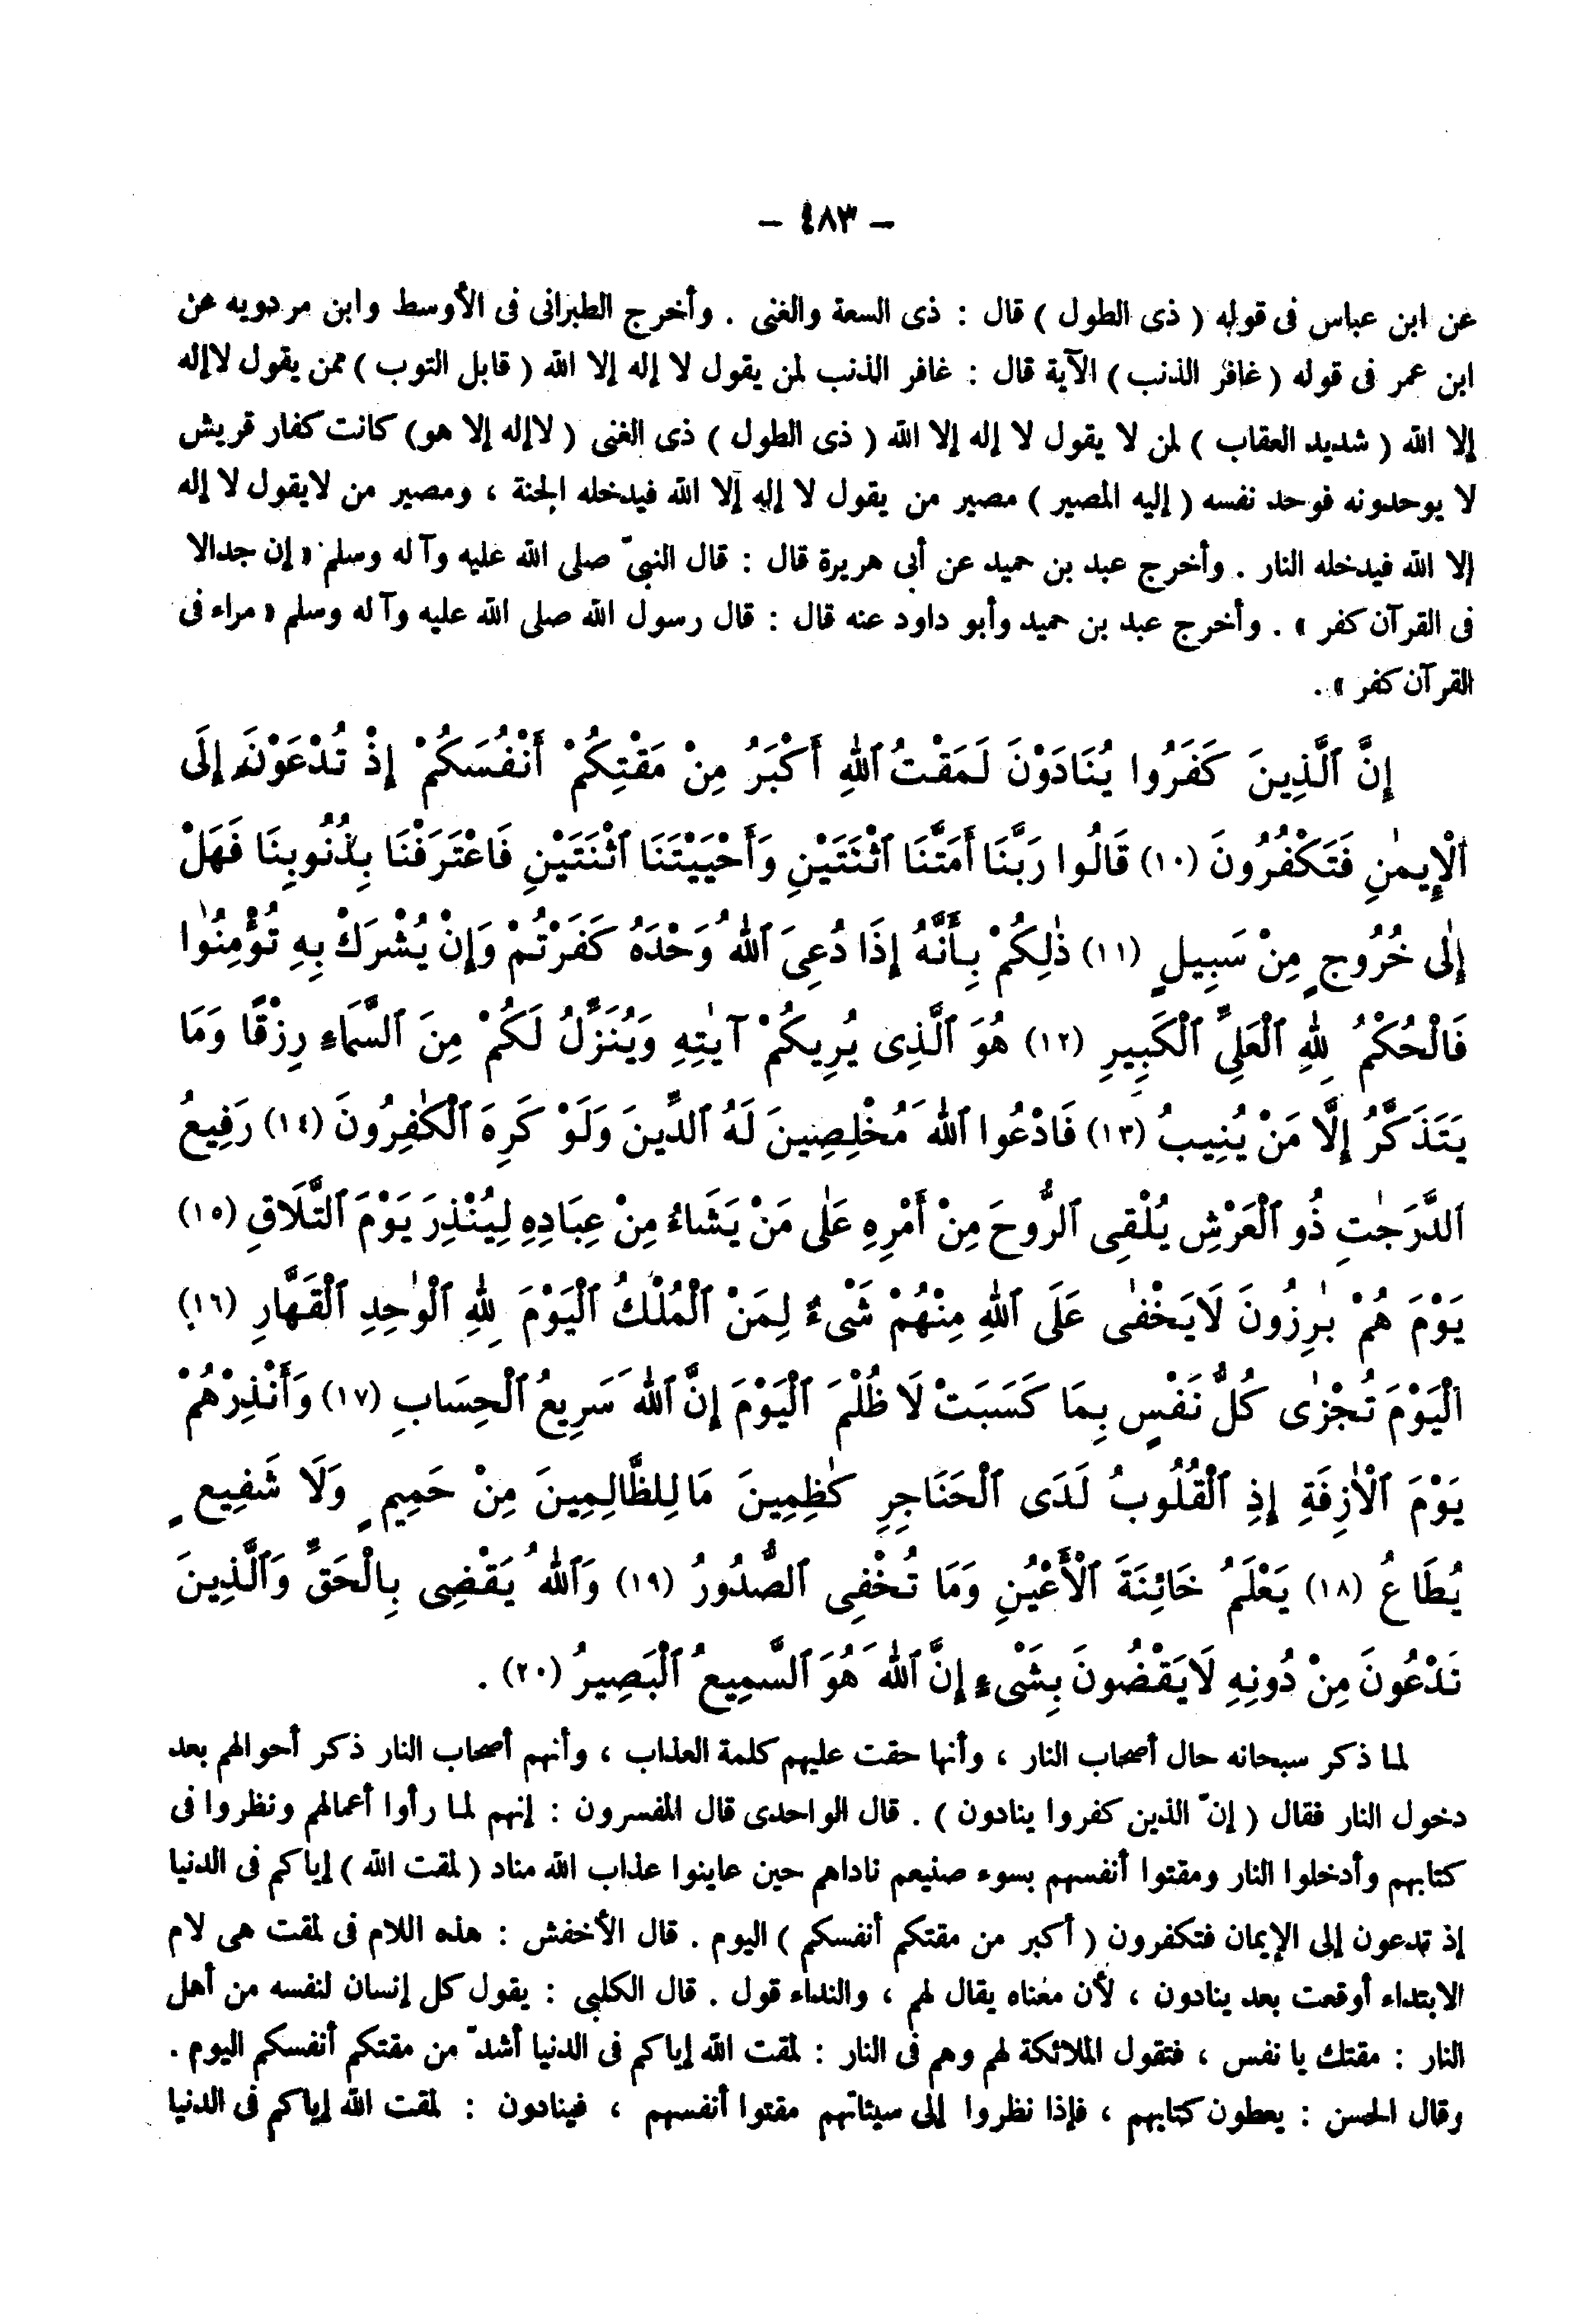 - ٤٨٣ -
عن ابن عباس فى قوله ( ذى الطول ) قال : ذى السعة والغنى . وأخرج الطبرانى فى الأوسط وابن مردويه عن
ابن عمر فى قوله ( غافر الذنب ) الآية قال : غافر الذنب لمن يقول لا إله إلا الله ( قابل التوب ) ممن يقول لاإله
إلا الله ( شديد العقاب ) لمن لا يقول لا إله إلا الله ( ذى الطول ) ذى الغنى ( لاإله إلا هو ) كانت كفار قريش
لا يوحدونه فوحد نفسه ( إليه المصير ) مصير من يقول لا إله إلا الله فيدخله الجنة ، ومصير من لايقول لا إله
إلا الله فيدخله النار . وأخرج عبد بن حميد عن أبى هريرة قال : قال النبىّ صلى الله عليه وآله وسلم « إن جدالا
فى القرآن كفر » . وأخرج عبد بن حميد وأبو داود عنه قال : قال رسول الله صلى الله عليه وآله وسلم « مراء فى
القرآن كفر » .
إِنَّ ٱلَّذِينَ كَفَرُوا يُنَادَوْنَ لَمَقْتُ ٱللهِ أَكْبَرُ مِنْ مَقْتِكُمْ أَنْفُسَكُمْ إِذْ تُدْعَوْنَ إِلَى
ٱلْإِيمٰنِ فَتَكْفُرُونَ (١٠) قَالُوا رَبَّنَا أَمَتَّنَا ٱثْنَتَيْنِ وَأَحْيَيْتَنَا ٱثْنَتَيْنِ فَاعْتَرَفْنَا بِذُنُوبِنَا فَهَلْ
إِلٰى خُرُوجٍ مِنْ سَبِيلٍ (١١) ذٰلِكُمْ بِأَنَّهُ إِذَا دُعِىَ ٱللهُ وَحْدَهُ كَفَرْتُمْ وَإِنْ يُشْرَكْ بِهِ تُؤْمِنُوٰا
فَالْحُكْمُ لِلهِ ٱلْعَلِىِّ ٱلْكَبِيرِ (١٢) هُوَ ٱلَّذِى يُرِيكُمْ آيٰتِهِ وَيُنَزِّلُ لَكُمْ مِنَ ٱلسَّمَاءِ رِزْقًا وَمَا
يَتَذَكَّرُ إِلَّا مَنْ يُنِيبُ (١٣) فَادْعُوا ٱللهَ مُخْلِصِينَ لَهُ ٱلدِّينَ وَلَوْ كَرِهَ ٱلْكٰفِرُونَ (١٤) رَفِيعُ
ٱلدَّرَجٰتِ ذُو ٱلْعَرْشِ يُلْقِى ٱلرُّوحَ مِنْ أَمْرِهِ عَلٰى مَنْ يَشَاءُ مِنْ عِبَادِهِ لِيُنْذِرَ يَوْمَ ٱلتَّلَاقِ (١٥)
يَوْمَ هُمْ بٰرِزُونَ لَايَخْفٰى عَلَى ٱللهِ مِنْهُمْ شَىْءٌ لِمَنْ ٱلْمُلْكُ ٱلْيَوْمَ لِلهِ ٱلْوٰحِدِ ٱلْقَهَّارِ (١٦)
ٱلْيَوْمَ تُجْزٰى كُلُّ نَفْسٍ بِمَا كَسَبَتْ لَا ظُلْمَ ٱلْيَوْمَ إِنَّ ٱللهَ سَرِيعُ ٱلْحِسَابِ (١٧) وَأَنْذِرْهُمْ
يَوْمَ ٱلْأَزِفَةِ إِذِ ٱلْقُلُوبُ لَدَى ٱلْحَنَاجِرِ كٰظِمِينَ مَا لِلظَّالِمِينَ مِنْ حَمِيمٍ وَلَا شَفِيعٍ
يُطَاعُ (١٨) يَعْلَمُ خَائِنَةَ ٱلْأَعْيُنِ وَمَا تُخْفِى ٱلصُّدُورُ (١٩) وَٱللهُ يَقْضِى بِالْحَقِّ وَٱلَّذِينَ
تَدْعُونَ مِنْ دُونِهِ لَايَقْضُونَ بِشَىْءٍ إِنَّ ٱللهَ هُوَ ٱلسَّمِيعُ ٱلْبَصِيرُ (٢٠) .
لما ذكر سبحانه حال أصحاب النار ، وأنها حقت عليهم كلمة العذاب ، وأنهم أصحاب النار ذكر أحوالهم بعد
دخول النار فقال ( إنّ الذين كفروا ينادون ) . قال الواحدى قال المفسرون : إنهم لما رأوا أعمالهم ونظروا فى
كتابهم وأدخلوا النار ومقتوا أنفسهم بسوء صنيعم ناداهم حين عاينوا عذاب الله مناد ( لمقت الله ) إياكم فى الدنيا
إذ تدعون إلى الإيمان فتكفرون ( أكبر من مقتكم أنفسكم ) اليوم . قال الأخفش : هذه اللام فى لمقت هى لام
الابتداء أوقعت بعد ينادون ، لأن معناه يقال لهم ، والنداء قول . قال الكلبى : يقول كل إنسان لنفسه من أهل
النار : مقتك يا نفس ، فتقول الملائكة لهم وهم فى النار : لمقت الله إياكم فى الدنيا أشدّ من مقتكم أنفسكم اليوم .
وقال الحسن : يعطون كتابهم ، فإذا نظروا إلى سيئاتهم مقتوا أنفسهم ، فينادون : لمقت الله إياكم فى الدنيا